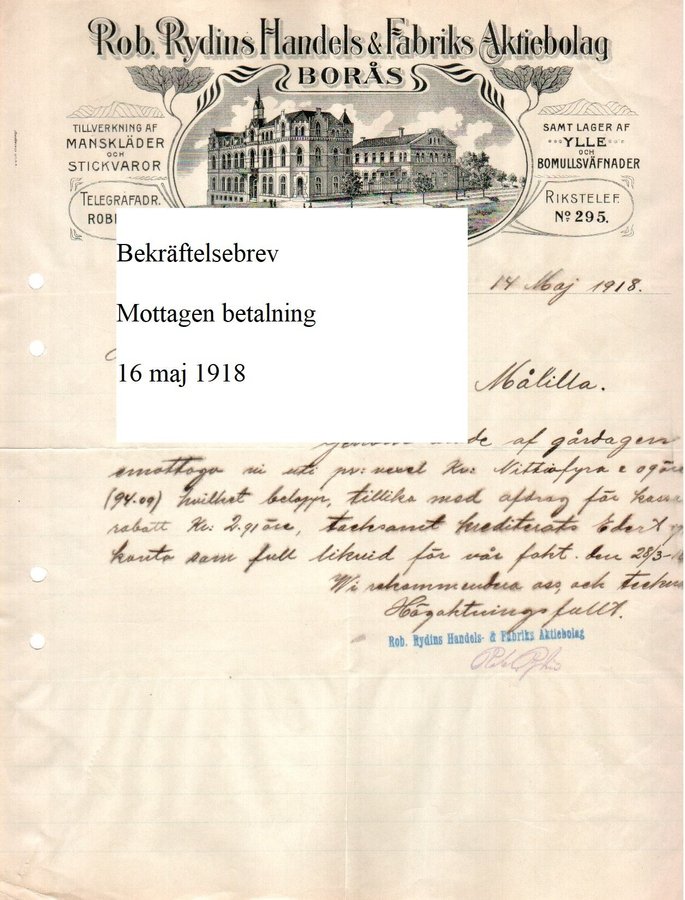 Rob. Rydins Handels & Fabriks Aktiebolag
BORÅS
TILLVERKNING AF
MANSKLÄDER
OCH
STICKVAROR
TELEGRAFADR.
ROBI
SAMT LAGER AF
YLLE
OCH
BOMULLSVÄFNADER
RIKSTELEF.
No 295.
Bekräftelsebrev
Mottagen betalning
16 maj 1918
14 Maj 1918.
Målilla.
af gårdagen
emottogo vi uti pr: vexel Kr: Nittiofyra & 09 öre
(94.09) hvilket belopp, tillika med afdrag för kassa
rabatt Kr. 2.91 öre, tacksamt krediterats Edert
konto som full likvid för vår fakt. den 28/3-1
Vi rekommendera oss, och teckna
Högaktningsfullt.
Rob. Rydins Handels- & Fabriks Aktiebolag